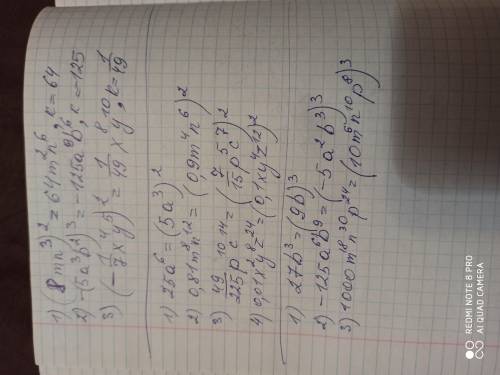 1) (8mn³)² = 64m²n⁶, к = 64
2) -(5a³b²)³ = -125a⁹b⁶, к = -125
3) (-1/7 x⁴y⁵)² = 1/49 x⁸y¹⁰, к = 1/49
1) 25a⁶ = (5a³)²
2) 0,81m⁸n¹² = (0,9m⁴n⁶)²
3) 49/225 p¹⁰c¹⁴ = (7/15 p⁵c⁷)²
4) 0,01x²y⁸z²⁴ = (0,1xy⁴z¹²)²
1) 27b³ = (9b)³
2) -125a⁶b⁹ = (-5a²b³)³
3) 1000m¹⁸n³⁰p²⁴ = (10m⁶n¹⁰p⁸)³
REDMI NOTE 8 PRO
AI QUAD CAMERA